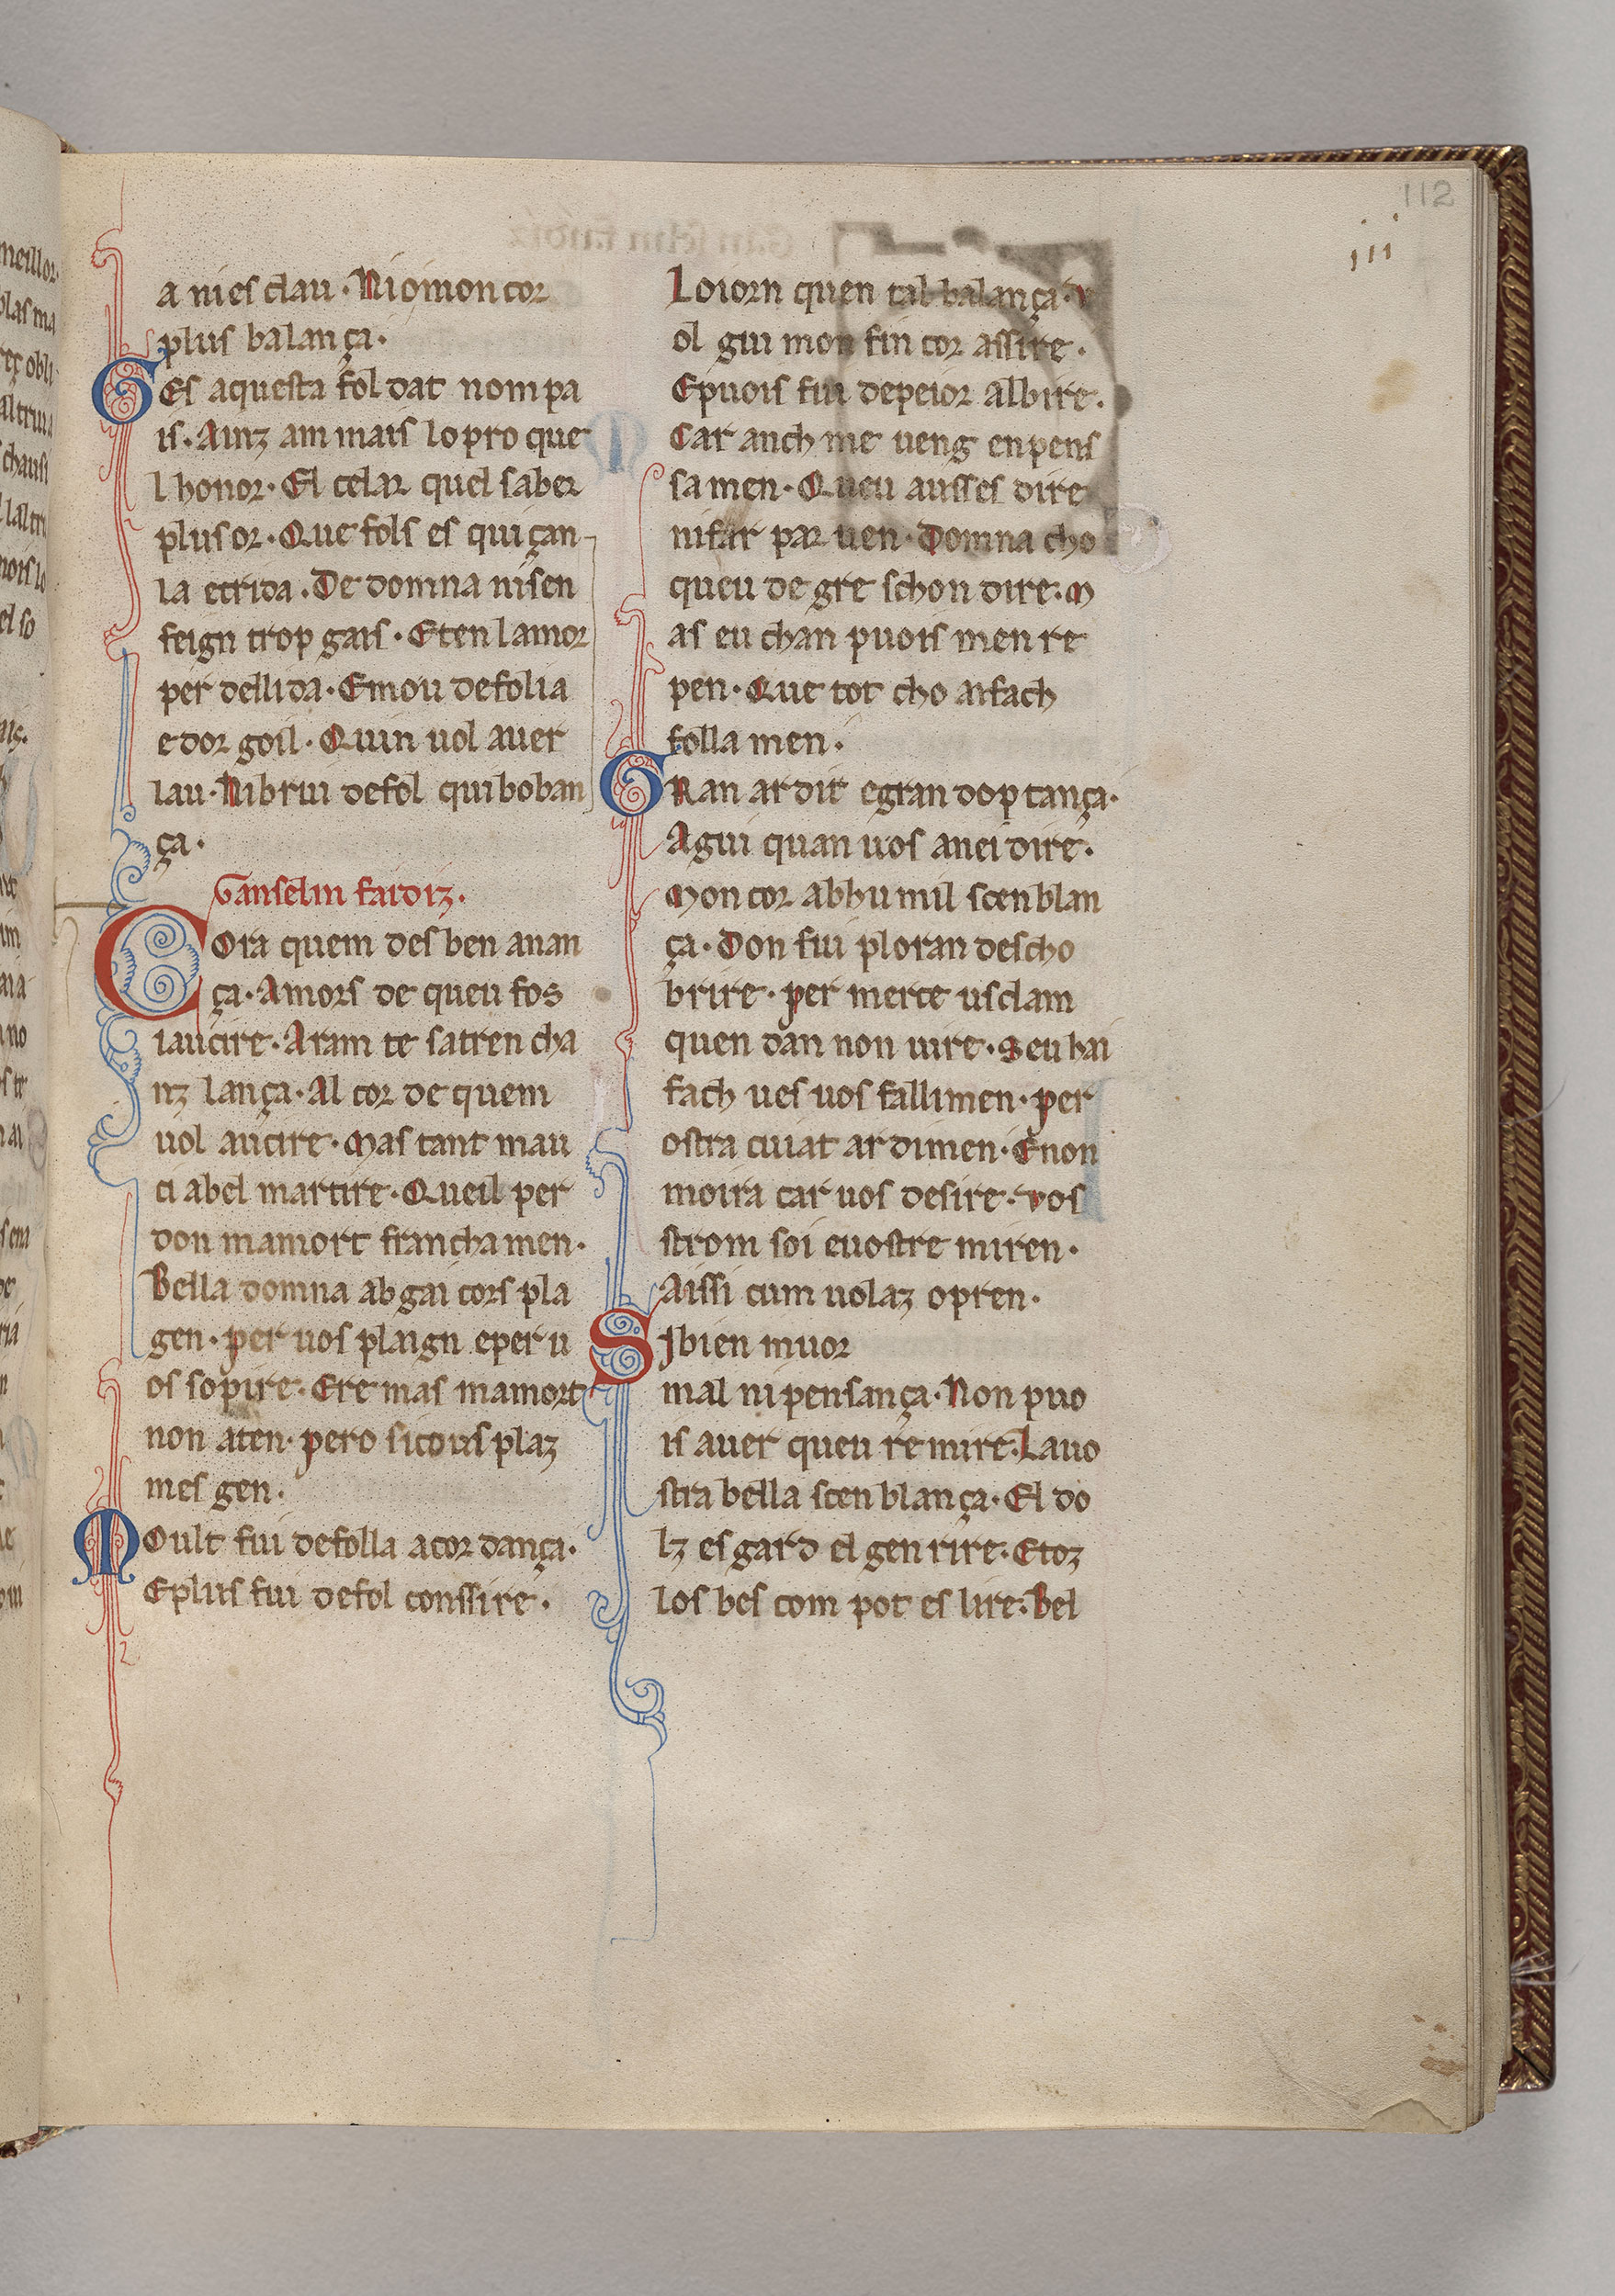 112
iii
a ni es clau. Ni o mon cor
plus balança.
GEs aquesta fol dat nom pa
is. Ainz am mais lo pro que
l honor. El celar quel saber
plus or. Que fols es qui çan
la et rida. De domna nisen
feign trop gais. Et en lamor
per dellida. E mou de folia
e dor goil. Quin uol auer
lau. Ni brui de fol qui boban
ça.
Ganselm faidiz.
COra quem des ben anan
ça. Amors de queu fos
iaucire. Aram te satren cha
nz lança. Al cor de quem
uol aucire. Mas tant mau
ci abel martire. Queil per
don mamort francha men.
Bella domna ab gai cors pla
gen. per uos plaign e per u
os sopire. Ere mas mamort
non aten. pero si cous plaz
mes gen.
MOult fui de folla acor dança.
E plus fui de fol conssire.
Lo iorn quen tal balança. v
ol gui mon fin cor assire.
E puois fui de peior albire.
Car anch me ueng en pens
sa men. Queu ausses dire
ni far par uen. Domna cho
queu de gre schon dire. M
as eu chan puois men re
pen. Que tot cho ai fach
folla men.
GRan ardit e gran dop tança.
Agui quan uos anei dire.
Mon cor ab hu mil scen blan
ça. Don fui ploran descho
brire. per merce us clam
quen dan non uire. Seu hai
fach ues uos fallimen. per
ostra cuiat ar dimen. E non
moira car uos desire. vos
strom soi e uostre miren.
Aissi cum uolaz o pren.
SI bien muor
mal ni pensança. Non puo
is auer queu re mire. La uo
stra bella scen blança. El do
lz es gard el gen rire. E toz
los bes com pot es lire. Bel